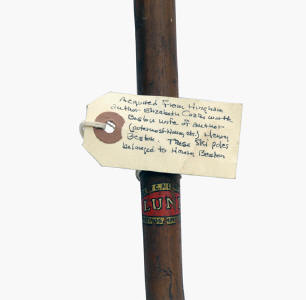 Acquired from Hingham
author Elizabeth Coatsworth
Beston wife of author
(outermost House, etc.) Henry
Beston. These ski poles
belonged to Henry Beston
LUND